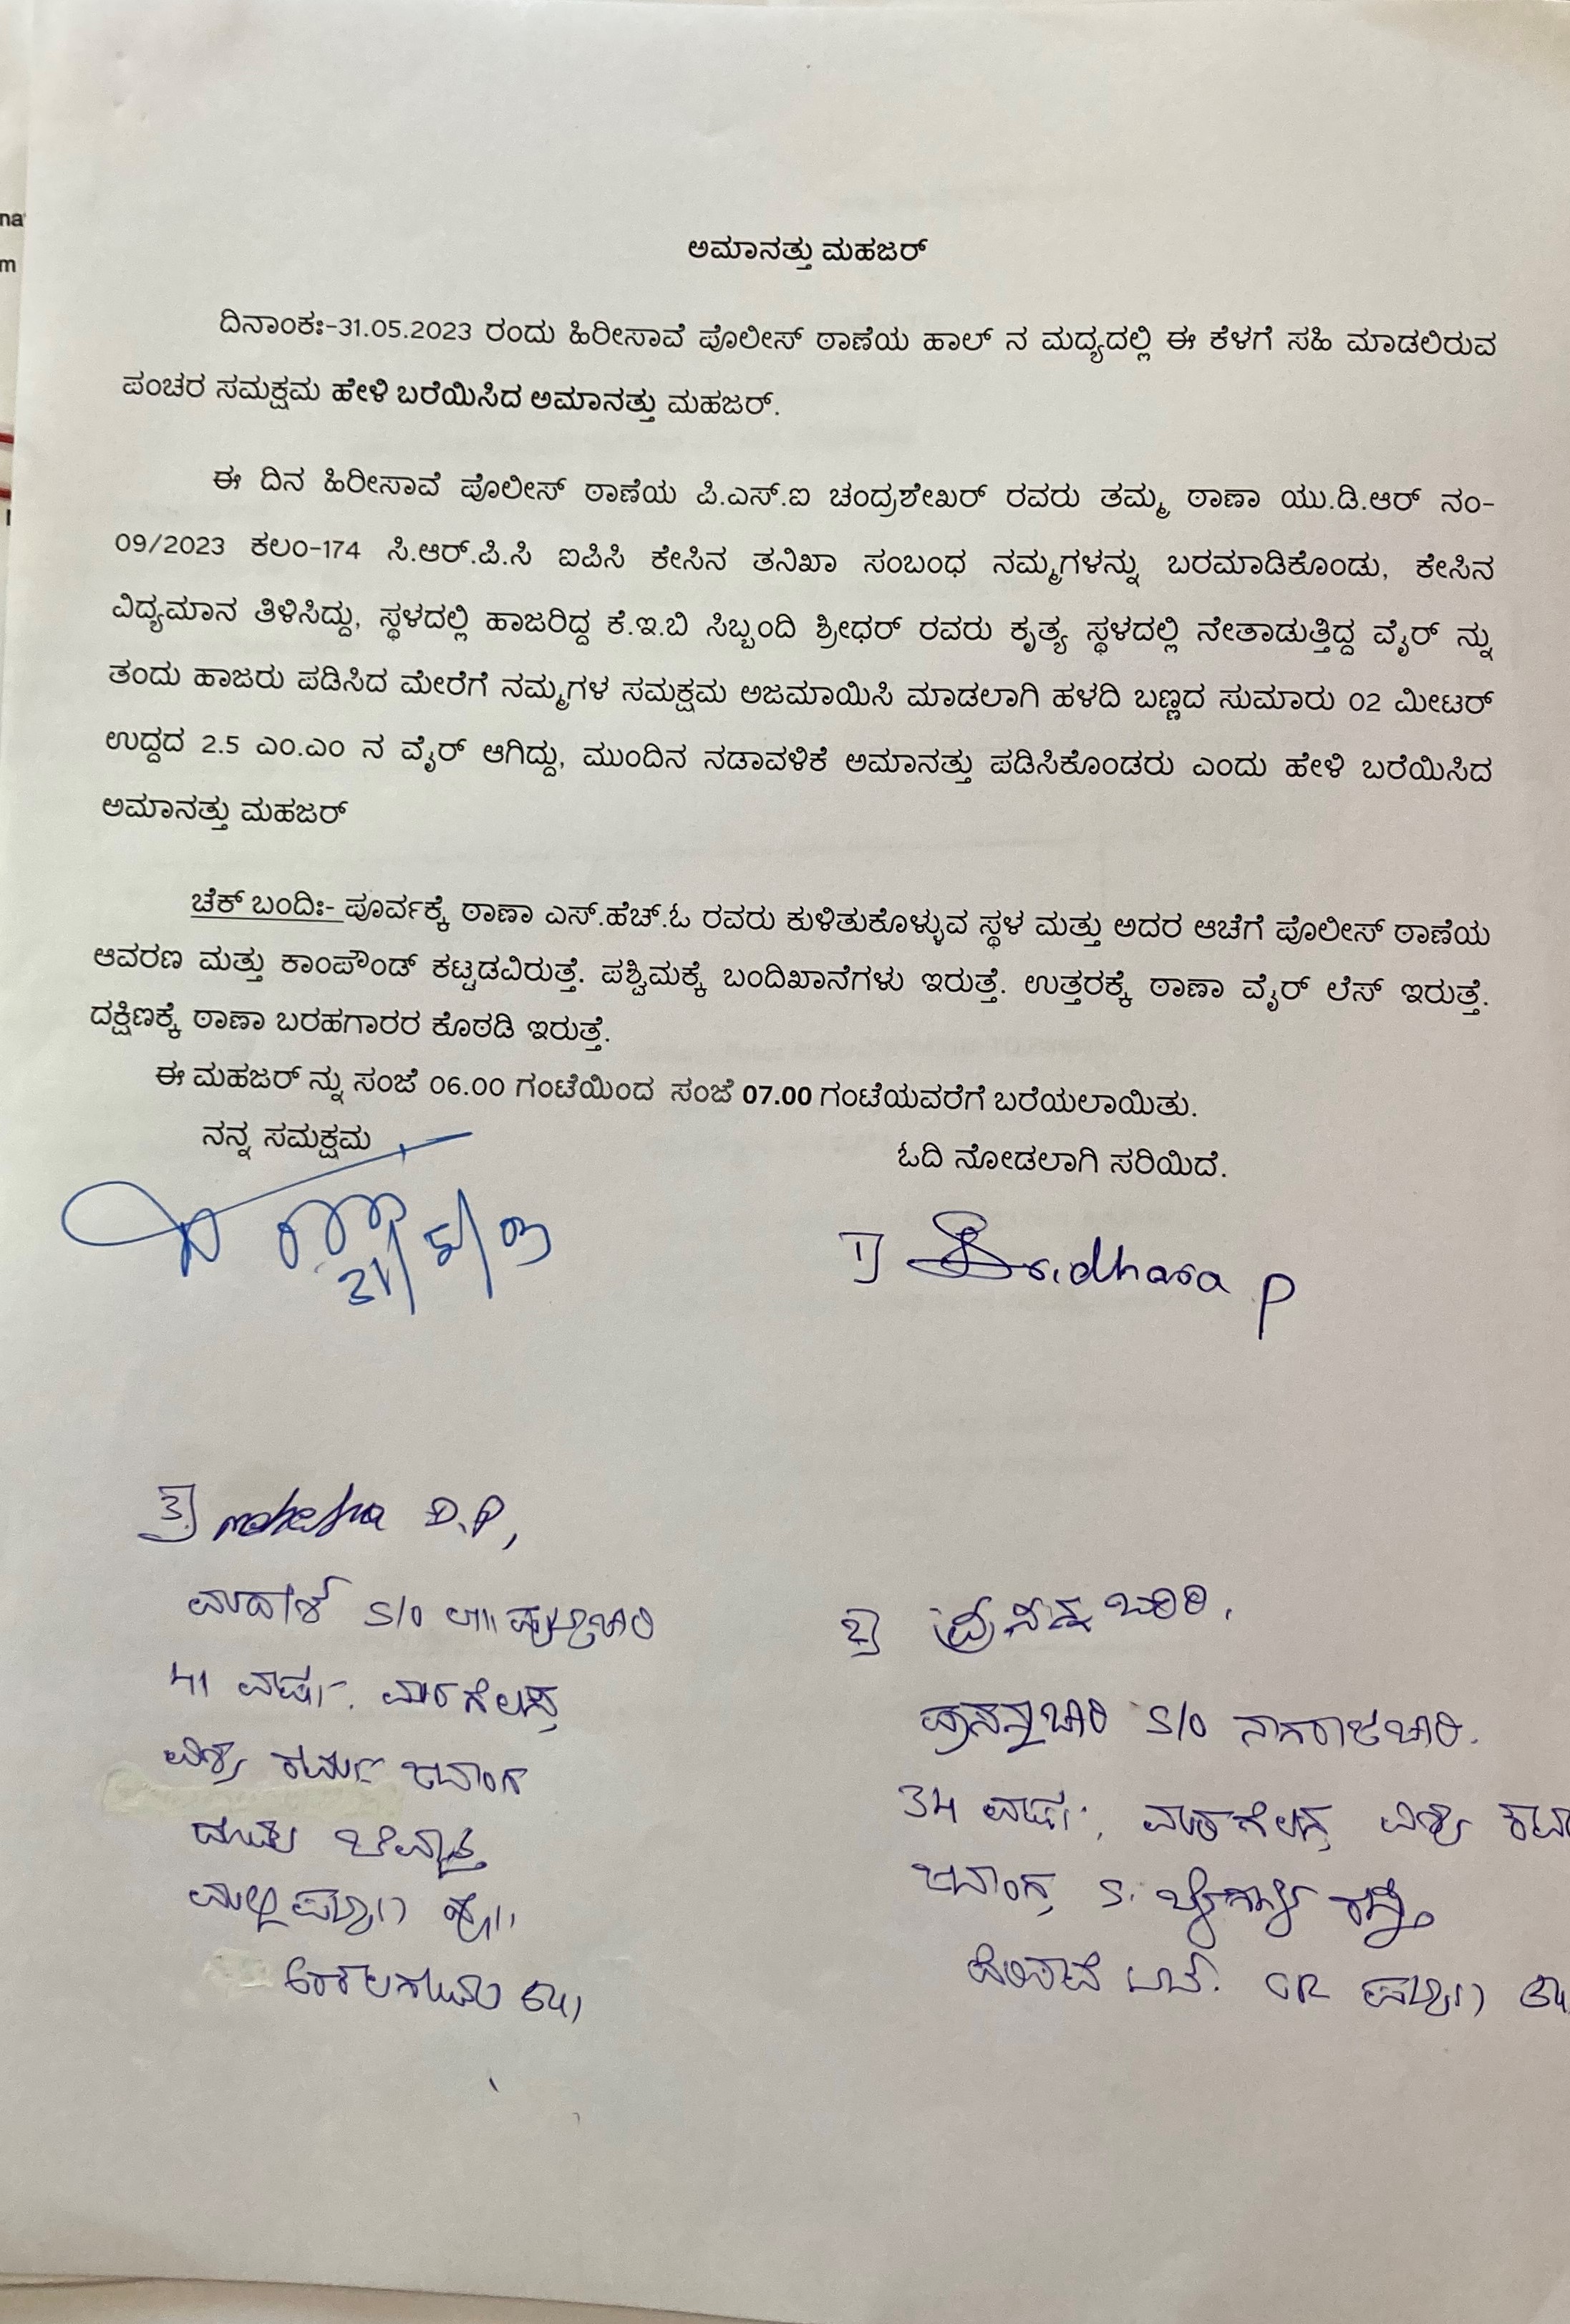 na
m
ಅಮಾನತ್ತು ಮಹಜರ್
ದಿನಾಂಕಃ-31.05.2023 ರಂದು ಹಿರೀಸಾವೆ ಪೊಲೀಸ್ ಠಾಣೆಯ ಹಾಲ್ ನ ಮದ್ಯದಲ್ಲಿ ಈ ಕೆಳಗೆ ಸಹಿ ಮಾಡಲಿರುವ
ಪಂಚರ ಸಮಕ್ಷಮ ಹೇಳಿ ಬರೆಯಿಸಿದ ಅಮಾನತ್ತು ಮಹಜರ್.
ಈ ದಿನ ಹಿರೀಸಾವೆ ಪೊಲೀಸ್ ಠಾಣೆಯ ಪಿ.ಎಸ್.ಐ ಚಂದ್ರಶೇಖರ್ ರವರು ತಮ್ಮ ಠಾಣಾ ಯು.ಡಿ.ಆರ್ ನಂ-
09/2023 ಕಲಂ-174 ಸಿ.ಆರ್.ಪಿ.ಸಿ ಐಪಿಸಿ ಕೇಸಿನ ತನಿಖಾ ಸಂಬಂಧ ನಮ್ಮಗಳನ್ನು ಬರಮಾಡಿಕೊಂಡು, ಕೇಸಿನ
ವಿದ್ಯಮಾನ ತಿಳಿಸಿದ್ದು, ಸ್ಥಳದಲ್ಲಿ ಹಾಜರಿದ್ದ ಕೆ.ಇ.ಬಿ ಸಿಬ್ಬಂದಿ ಶ್ರೀಧರ್ ರವರು ಕೃತ್ಯ ಸ್ಥಳದಲ್ಲಿ ನೇತಾಡುತ್ತಿದ್ದ ವೈರ್ ನ್ನು
ತಂದು ಹಾಜರು ಪಡಿಸಿದ ಮೇರೆಗೆ ನಮ್ಮಗಳ ಸಮಕ್ಷಮ ಅಜಮಾಯಿಸಿ ಮಾಡಲಾಗಿ ಹಳದಿ ಬಣ್ಣದ ಸುಮಾರು 02 ಮೀಟರ್
ಉದ್ದದ 2.5 ಎಂ.ಎಂ ನ ವೈರ್ ಆಗಿದ್ದು, ಮುಂದಿನ ನಡಾವಳಿಕೆ ಅಮಾನತ್ತು ಪಡಿಸಿಕೊಂಡರು ಎಂದು ಹೇಳಿ ಬರೆಯಿಸಿದ
ಅಮಾನತ್ತು ಮಹಜರ್
ಚೆಕ್ ಬಂದಿಃ- ಪೂರ್ವಕ್ಕೆ ಠಾಣಾ ಎಸ್.ಹೆಚ್.ಓ ರವರು ಕುಳಿತುಕೊಳ್ಳುವ ಸ್ಥಳ ಮತ್ತು ಅದರ ಆಚೆಗೆ ಪೊಲೀಸ್ ಠಾಣೆಯ
ಆವರಣ ಮತ್ತು ಕಾಂಪೌಂಡ್ ಕಟ್ಟಡವಿರುತ್ತೆ. ಪಶ್ವಿಮಕ್ಕೆ ಬಂದಿಖಾನೆಗಳು ಇರುತ್ತೆ. ಉತ್ತರಕ್ಕೆ ಠಾಣಾ ವೈರ್ ಲೆಸ್ ಇರುತ್ತೆ.
ದಕ್ಷಿಣಕ್ಕೆ ಠಾಣಾ ಬರಹಗಾರರ ಕೊಠಡಿ ಇರುತ್ತೆ.
ಈ ಮಹಜರ್ ನ್ನು ಸಂಜೆ 06.00 ಗಂಟೆಯಿಂದ ಸಂಜೆ 07.00 ಗಂಟೆಯವರೆಗೆ ಬರೆಯಲಾಯಿತು.
ನನ್ನ ಸಮಕ್ಷಮ
ಓದಿ ನೋಡಲಾಗಿ ಸರಿಯಿದೆ.
31/5/
1] Sridhara P
3] mahesha D.P,
S/o
41 ವರ್ಷ.
2] ಪ್ರಸನ್ನಚಾರಿ.
ಪ್ರಸನ್ನಚಾರಿ S/o ನಾಗರಾಜಚಾರಿ.
34 ವರ್ಷ,